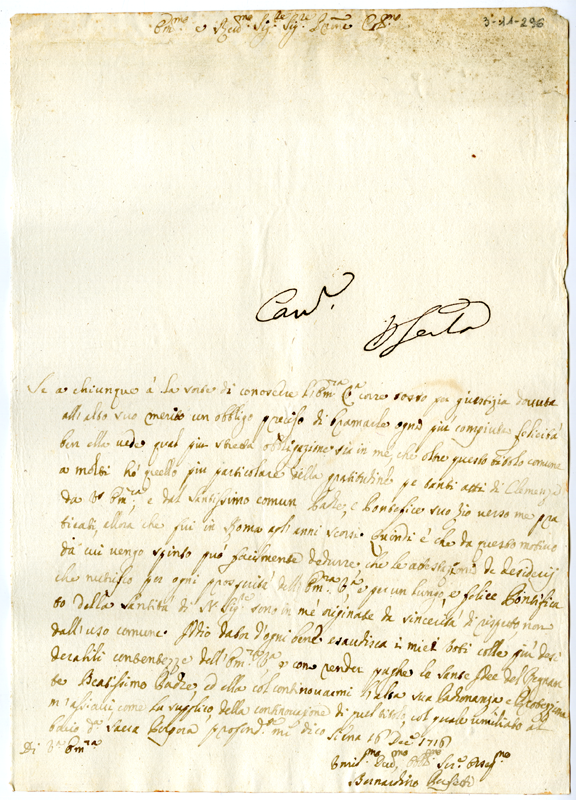 3-41-296
Em.mo e Rev.mo Sig.re Sig.re Prone Col.mo
Car.
Se a chiunque à la sorte di conoscere l'Em.za V.a corre sovra per giustizia dovuta
all'alto suo merito un obbligo preciso di bramarle ogni più compiuta felicità
ben ella vede qual più stretta obbligazione sia in me, che oltre questo titolo comune
a molti hò quello più particolare della gratitudine pe tanti atti di Clemenza
da V. Em.za, e dal Santissimo comun Padre, e Pontefice suo zio verso me pra
ticati, allora che fui in Roma agli anni scorsi. Quindi è che da questo motivo
da cui vengo spinto può facilmente dedurre, che le attestazioni de desiderij
che nutrisco per ogni prosperità dell'Em.za V.a e per un lungo, e felice Pontifica
to della Santità di N. Sig.re sono in me originate da sincerità di rispetto non
dall'uso comune. Iddio dator d'ogni bene esaudisca i miei voti colle più desi
derabili contentezze dell'Em.za V.a e con render paghe le Sante Idee del Regnan
te Beatissimo Padre, ed ella col continovarmi l'alta sua Padronanza
m'assicuri come la supplico della continuazione di quel titolo, col quale umiliato al
bacio d. Sacra Porpora profond.te mi dico Siena 16 Dec.e 1716
Di V.a Em.za
Umil.mo Dev.mo Obb. Ser.e Osseq.mo
Bernardino